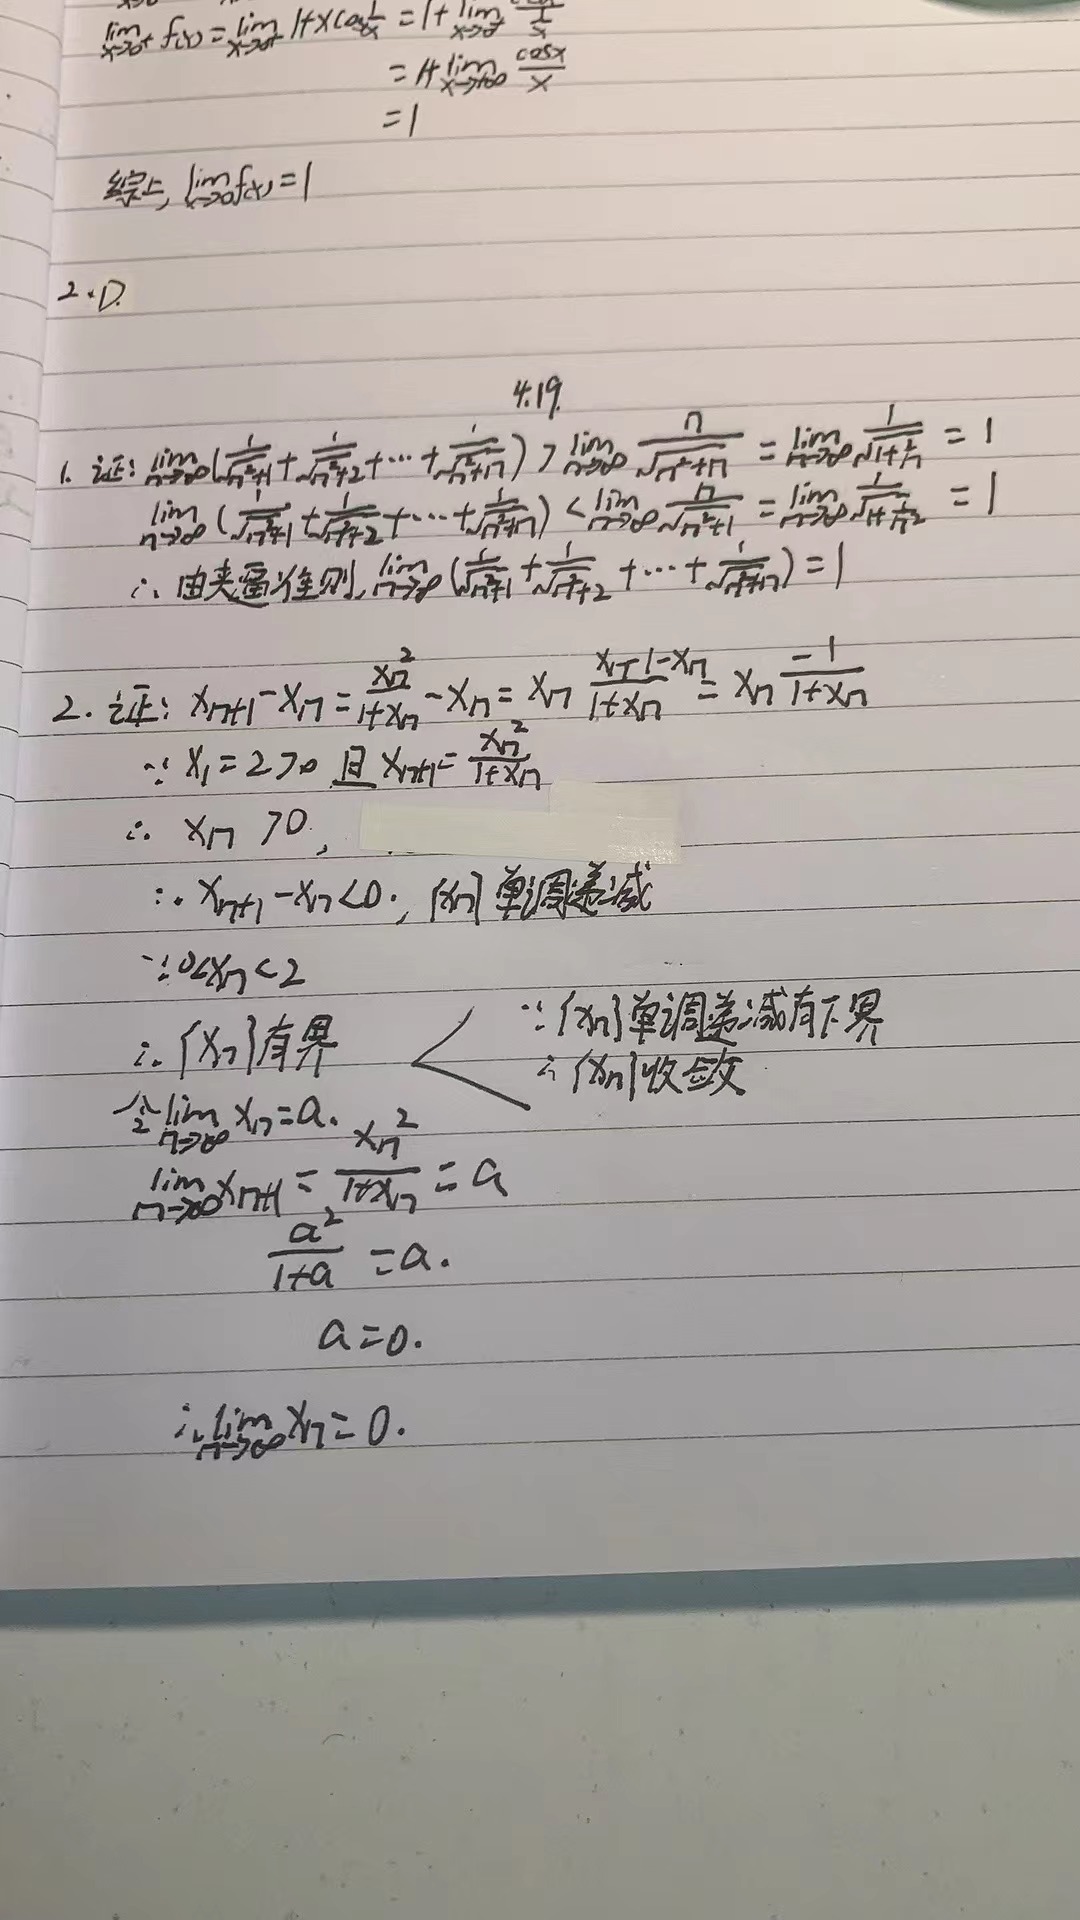 lim x→0⁺ f(x) = lim x→0⁺ 1+xcos 1/x = 1+ lim x→0⁺
= 1+ lim x→+∞ cosx/x
= 1
综上, lim x→0 f(x) = 1
2. D.
4.19.
1. 证: lim n→∞ (1/√(n²+1) + 1/√(n²+2) + ⋯ + 1/√(n²+n)) > lim n→∞ n/√(n²+n) = lim n→∞ 1/√(1+1/n) = 1
lim n→∞ (1/√(n²+1) + 1/√(n²+2) + ⋯ + 1/√(n²+n)) < lim n→∞ n/√(n²+1) = lim n→∞ 1/√(1+1/n²) = 1
∴ 由夹逼准则, lim n→∞ (1/√(n²+1) + 1/√(n²+2) + ⋯ + 1/√(n²+n)) = 1
2. 证: xₙ₊₁ - xₙ = xₙ²/(1+xₙ) - xₙ = xₙ (xₙ-1-xₙ)/(1+xₙ) = xₙ -1/(1+xₙ)
∵ x₁ = 2 > 0 且 xₙ₊₁ = xₙ²/(1+xₙ)
∴ xₙ > 0,
∴ xₙ₊₁ - xₙ < 0, {xₙ} 单调递减
∵ 0 < xₙ < 2
∴ {xₙ} 有界
∵ {xₙ} 单调递减有下界
∴ {xₙ} 收敛
令 lim n→∞ xₙ = a.
lim n→∞ xₙ₊₁ = xₙ²/(1+xₙ) = a
a²/(1+a) = a.
a = 0.
∴ lim n→∞ xₙ = 0.